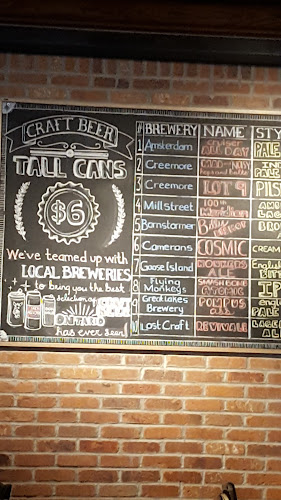 CRAFT BEER
TALL CANS
$6
We've teamed up with
LOCAL BREWERIES
to bring you the best
selection of CRAFT BEER
ONTARIO
has ever seen!
# BREWERY NAME STY
1 Amsterdam Cruiser ALL DAY PALE
2 Creemore
3 Creemore LOT 9 PILS
4 Mill Street 100th Meridian
5 Barnstormer
6 Camerons COSMIC CREAM
7 Goose Island ALE English
8 Flying Monkeys SMASHBOMB ATOMIC IP
9 Great Lakes Brewery POMPOUS PALE
10 Lost Craft REVIVALE LAGE